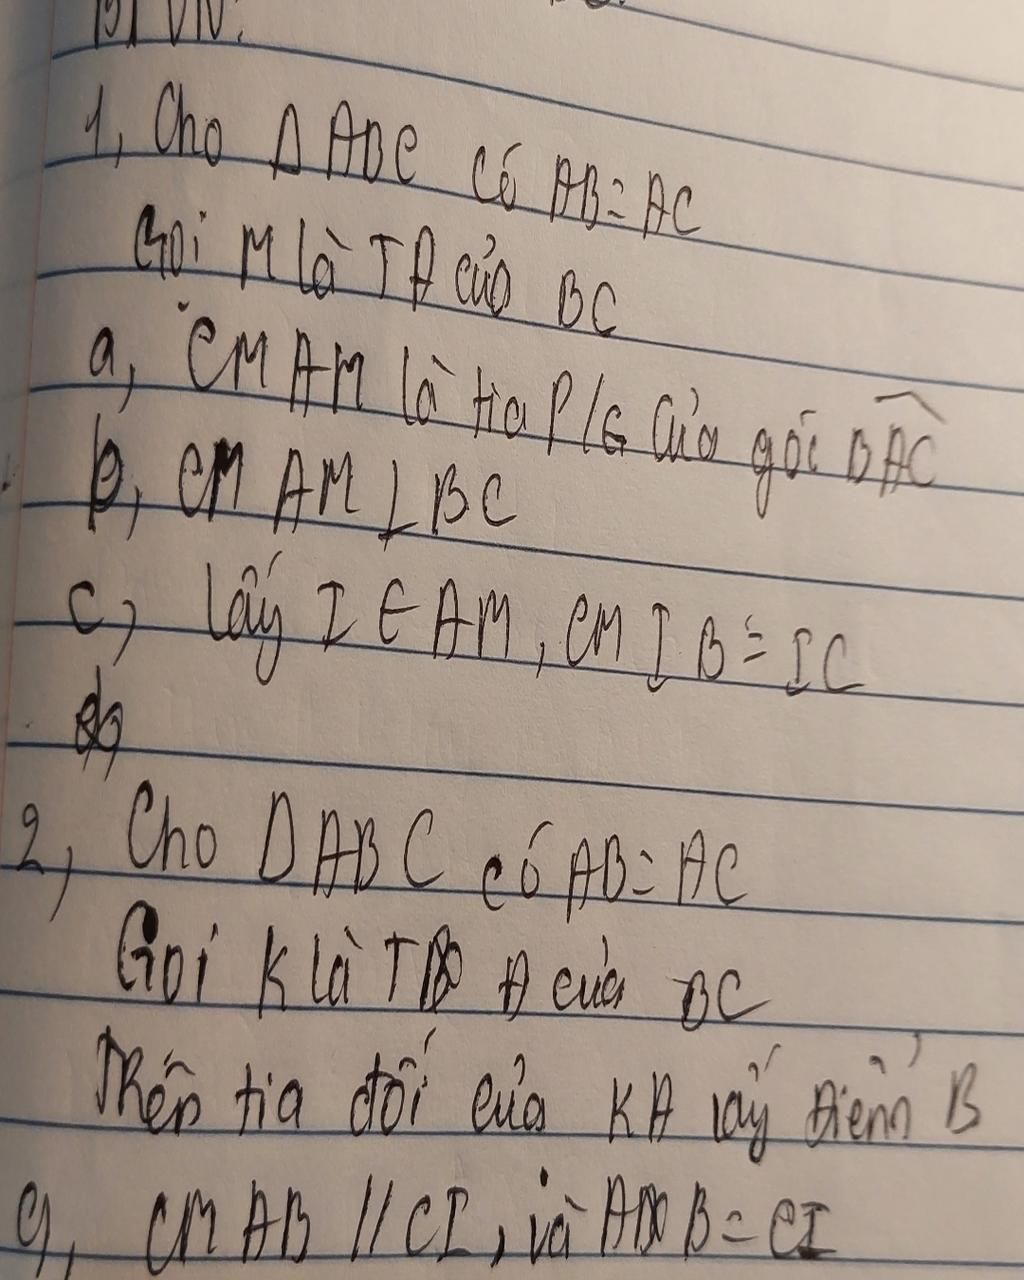 BTVN:
1, Cho Δ ABC có AB = AC
Gọi M là TĐ của BC
a, CM AM là tia P/G của góc BAC
b, CM AM ⊥ BC
c, lấy I ∈ AM, CM IB = IC
2, Cho Δ ABC có AB = AC
Gọi K là TĐ của BC
Trên tia đối của KA lấy điểm B
a, CM AB // CI, và AB = CI